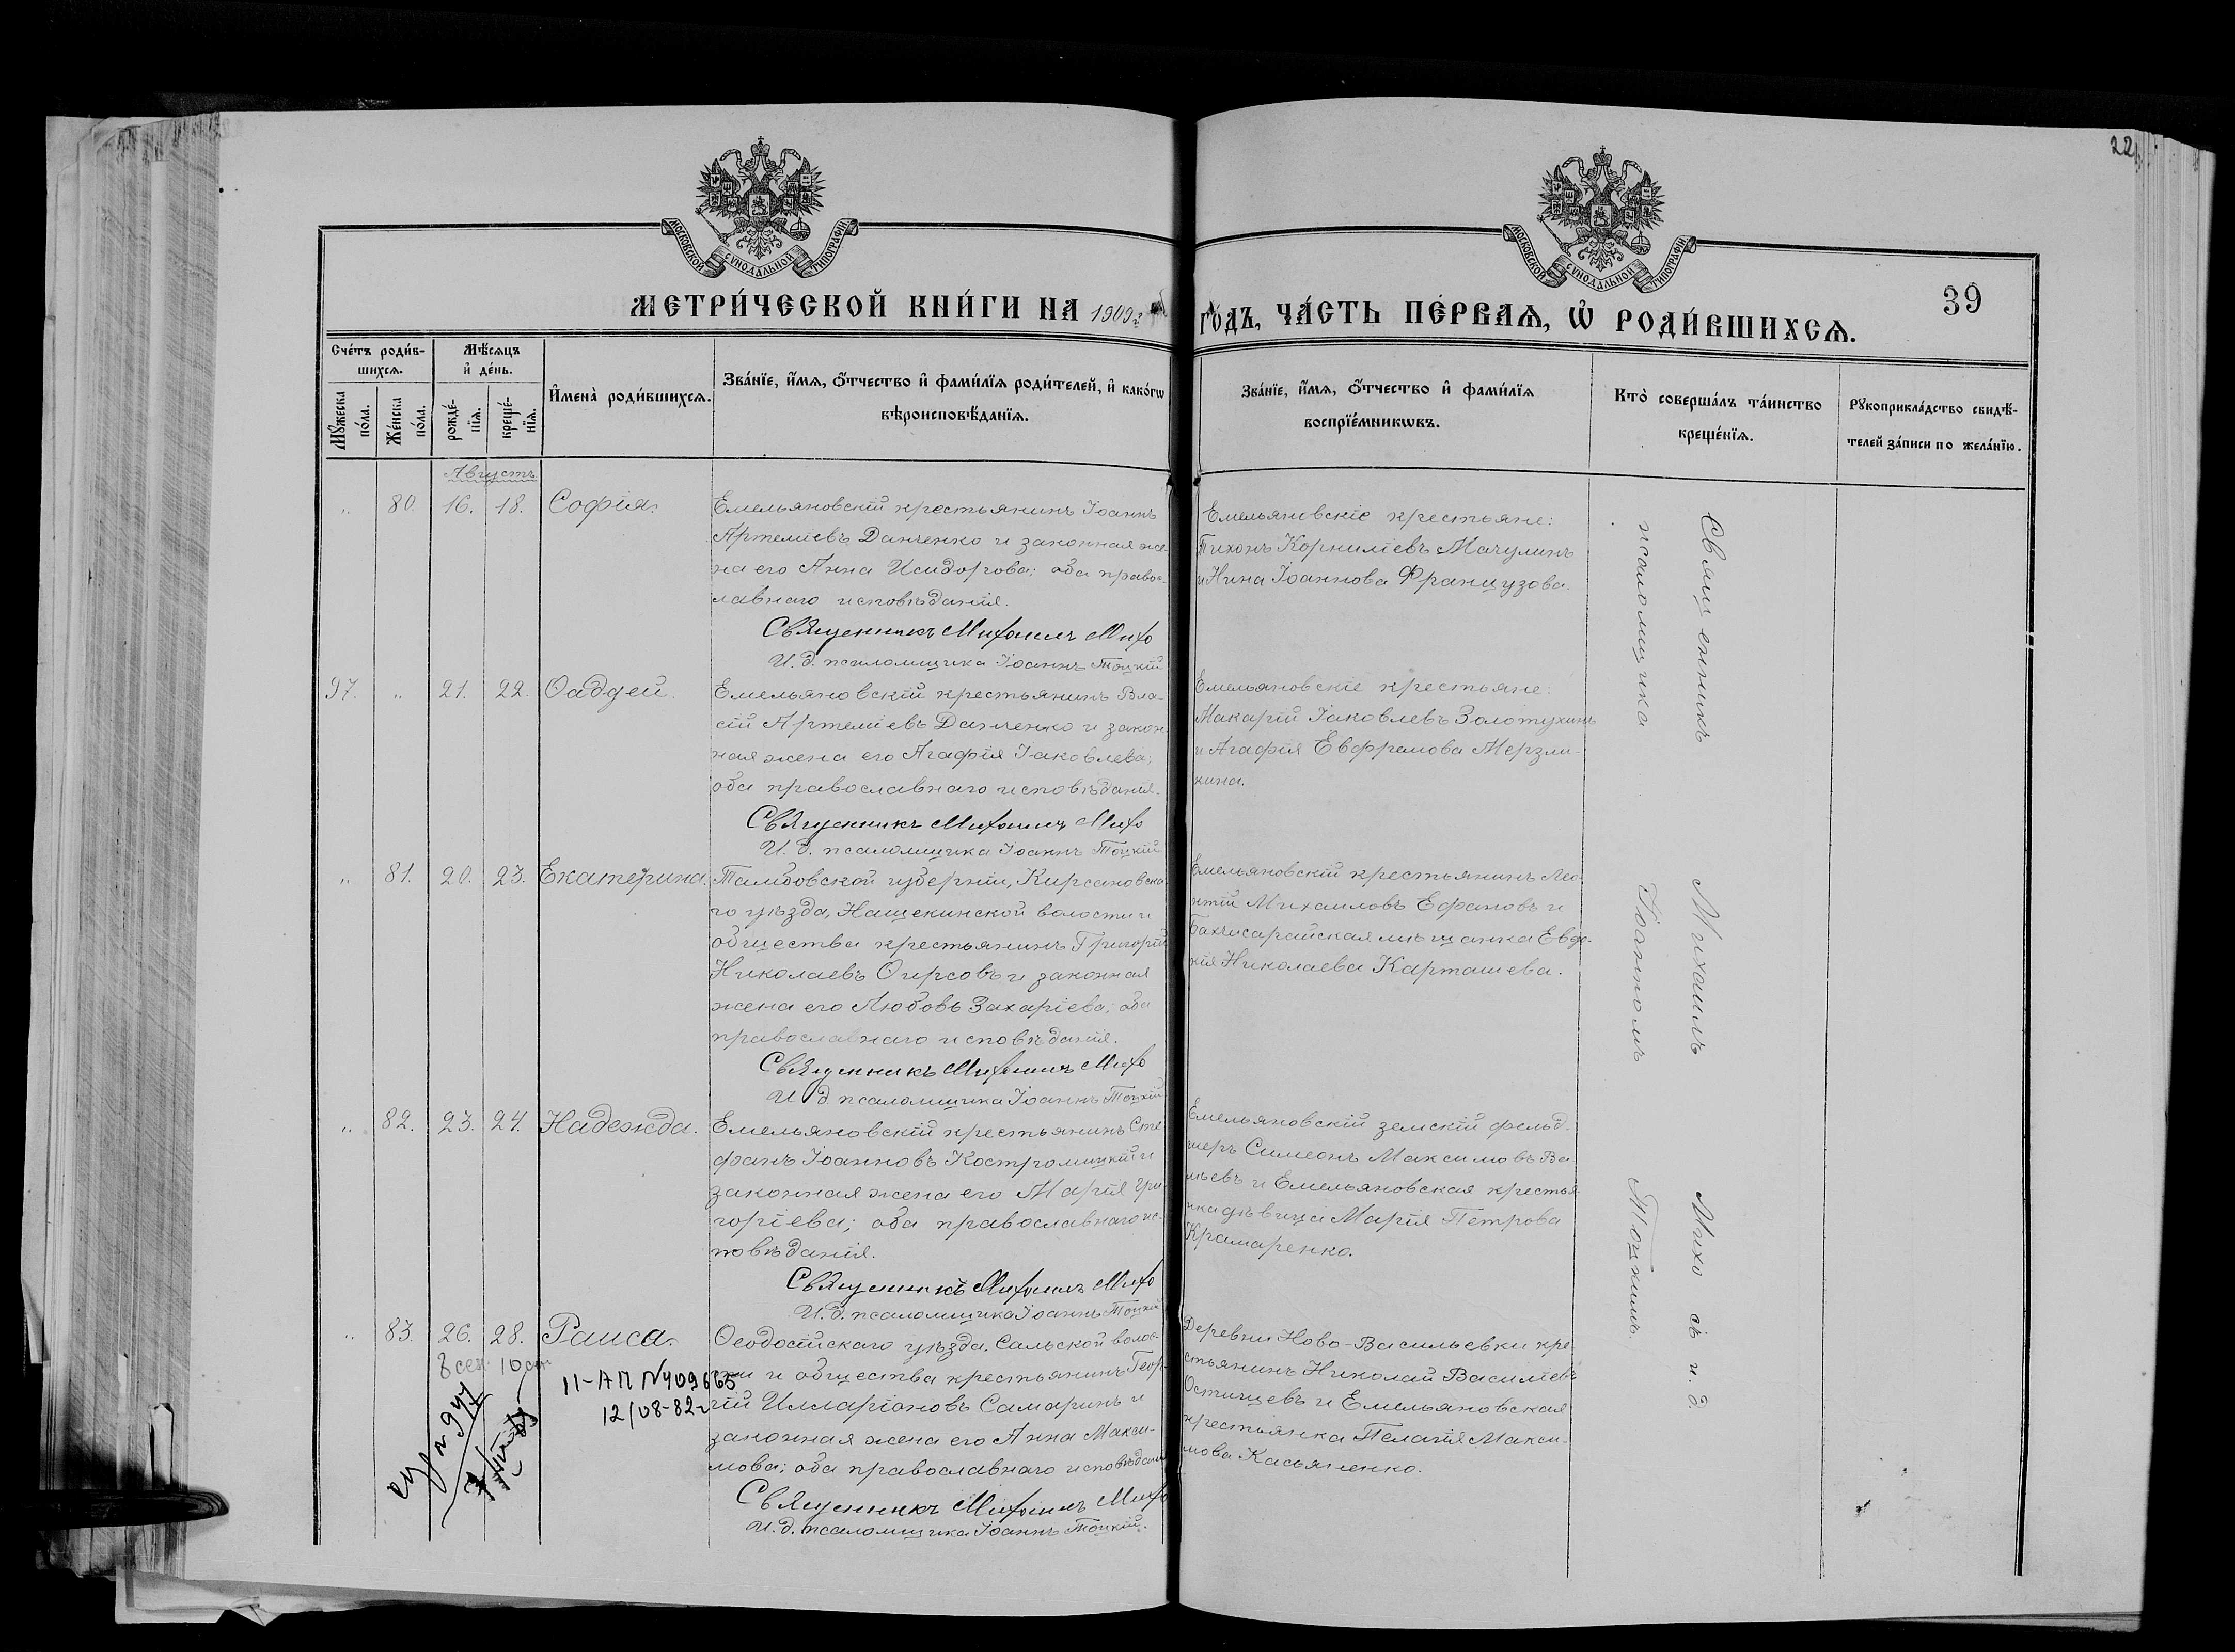 22
МОСКОВСКОЙ СѴНОДАЛЬНОЙ ТИПОГРАФІИ
МОСКОВСКОЙ СѴНОДАЛЬНОЙ ТИПОГРАФІИ
39
МЕТРИ́ЧЕСКОЙ КНИ́ГИ НА 1909 г.
ГО́ДЪ, ЧА́СТЬ ПЕ́РВАѦ, Ѡ҆ РОДИ́ВШИХСѦ.
Сче́тъ роди́в-
шихсѧ.
Мꙋ́жеска по́ла.
Же́нска по́ла.
Мѣ́сѧцъ
и҆ де́нь.
рожде́-
нїѧ.
креще́-
нїѧ.
И҆мена̀ роди́вшихсѧ.
Зва́нїе, и҆́мѧ, ѻ҆́тчество и҆ фами́лїѧ роди́телей, и҆ како́гѡ
вѣроисповѣ́данїѧ.
Зва́нїе, и҆́мѧ, ѻ҆́тчество и҆ фами́лїѧ
воспрїе́мникѡвъ.
Кто̀ соверша́лъ та́инство
креще́нїѧ.
Рꙋкоприкла́дство свидѣ́-
телей за́писи по жела́нїю.
Августъ
„ 80. 16. 18. Софія.
Емельяновскій крестьянинъ Іоаннъ
Артеміевъ Данченко и законная же-
на его Анна Исидорова; оба правос-
лавнаго исповѣданія.
Священникъ Михаилъ Михо
И. д. псаломщика Іоаннъ Тоцкій
Емельяновскіе крестьяне:
Тихонъ Корниліевъ Мачулинъ
и Нина Іоаннова Французова.
97. „ 21. 22. Ѳаддей.
Емельяновскій крестьянинъ Вла-
сій Артеміевъ Данченко и закон-
ная жена его Агафія Іаковлева;
оба православнаго исповѣданія.
Священникъ Михаилъ Михо
И. д. псаломщика Іоаннъ Тоцкій
Емельяновскіе крестьяне:
Макарій Іаковлевъ Золотухинъ
и Агафія Евфремова Мерзли-
кина.
„ 81. 20. 23. Екатерина.
Тамбовской губерніи, Кирсановска-
го уѣзда, Нащекинской волости и
общества крестьянинъ Григорій
Николаевъ Ѳирсовъ и законная
жена его Любовь Захаріева; оба
православнаго исповѣданія.
Священникъ Михаилъ Михо
И. д. псаломщика Іоаннъ Тоцкій
Емельяновскій крестьянинъ Лео-
нтій Михаиловъ Ефановъ и
Бахчисарайская мѣщанка Евдо-
кія Николаева Карташева.
„ 82. 23. 24. Надежда.
Емельяновскій крестьянинъ Сте-
фанъ Іоанновъ Костромицкій и
законная жена его Марія Гри-
горіева; оба православнаго ис-
повѣданія.
Священникъ Михаилъ Михо
И. д. псаломщика Іоаннъ Тоцкій
Емельяновскій земскій фельд-
шеръ Симеонъ Максимовъ Ва-
льевъ и Емельяновская крестья-
нка дѣвица Марія Петрова
Крамаренко.
„ 83. 26. 28. Раиса.
8 сен 10 сен
11-АП №409665
12/08-82г
Ѳеодосійскаго уѣзда, Сальской волос-
ти и общества крестьянинъ Геор-
гій Илларіоновъ Самаринъ и
законная жена его Анна Макси-
мова; оба православнаго исповѣданія
Священникъ Михаилъ Михо
И. д. псаломщика Іоаннъ Тоцкій.
Деревни Ново-Васильевки кре-
стьянинъ Николай Василіевъ
Остищевъ и Емельяновская
крестьянка Пелагія Макси-
мова Касьяненко.
Священникъ Михаилъ Михо съ и. д.
псаломщика Іоанномъ Тоцкимъ.